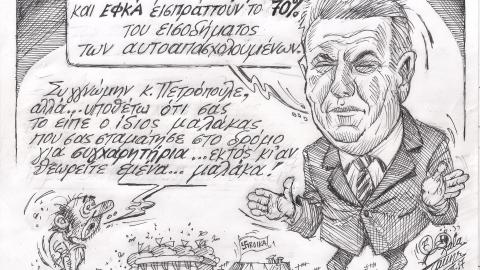 και ΕΦΚΑ εισπράττουν το 70%
του εισοδήματος
των αυτοαπασχολουμένων.
Συγγνώμην κ. Πετρόπουλε,
αλλά...υποθέτω ότι σας
το είπε ο ίδιος μαλάκας
που σας σταμάτησε στο δρόμο
για συγχαρητήρια...εκτός κι αν
θεωρείτε εμένα... μαλάκα!